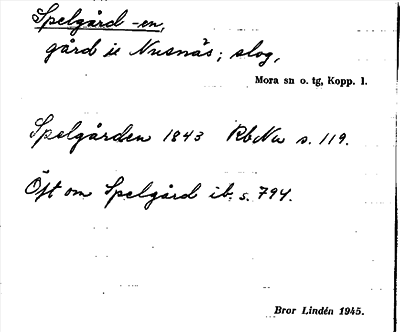 Spelgård -en,
gård i Nusnäs; slog,
Mora sn o. tg, Kopp. l.
Spelgården 1843 RbNu s. 119.
Öft om Spelgård ib. s. 794.
Bror Lindén 1945.